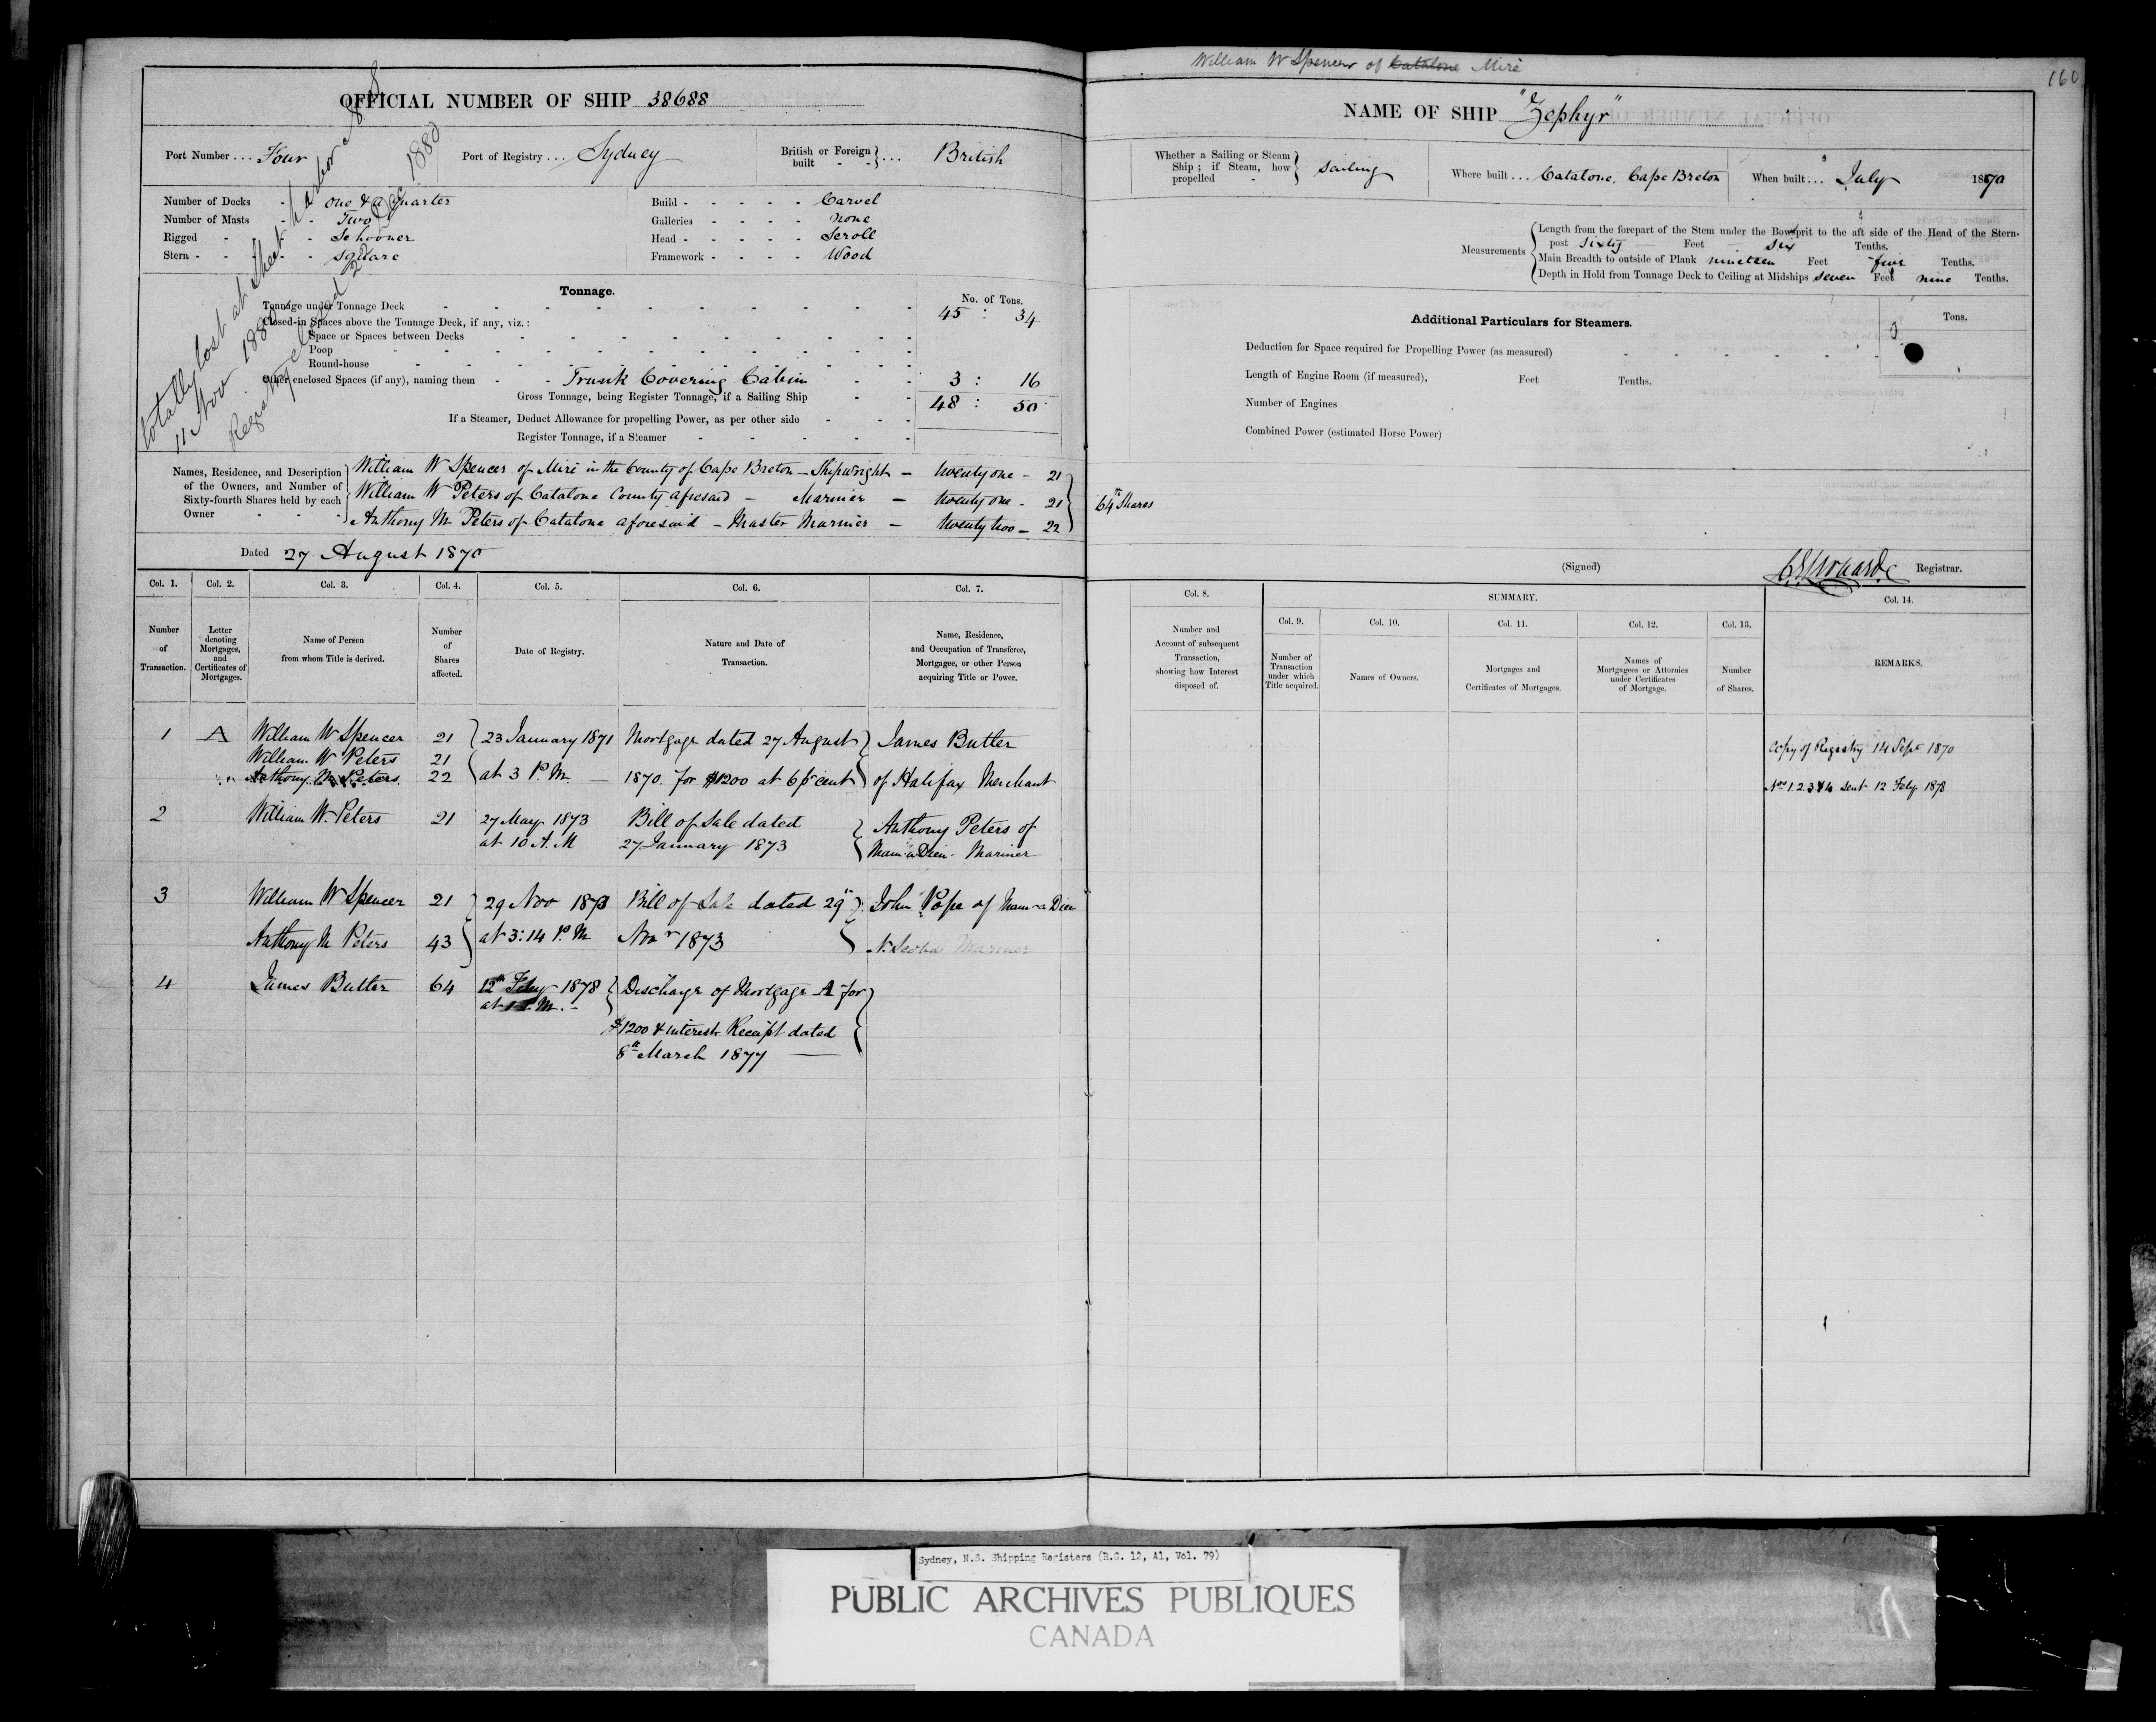 William W Spencer of Catalone Miré
160
OFFICIAL NUMBER OF SHIP 38688
Port Number ... Four
Port of Registry ... Sydney
British or Foreign built } ... British
Number of Decks - one & a quarter
Number of Masts - - Two
Rigged - - - Schooner
Stern - - - - square
Build - - - - - Carvel
Galleries - - - - none
Head - - - - - Scroll
Framework - - - - Wood
totally lost at Sheet Harbor N.S
11 Nov 1880
Registry closed 22 Dec 1880
Tonnage.
No. of Tons.
Tonnage under Tonnage Deck 45 : 34
Closed-in Spaces above the Tonnage Deck, if any, viz. :
Space or Spaces between Decks
Poop
Round-house
Other enclosed Spaces (if any), naming them - - Trunk Covering Cabin 3 : 16
Gross Tonnage, being Register Tonnage, if a Sailing Ship 48 : 50
If a Steamer, Deduct Allowance for propelling Power, as per other side
Register Tonnage, if a Steamer
Names, Residence, and Description of the Owners, and Number of Sixty-fourth Shares held by each Owner
William W Spencer of Miré in the County of Cape Breton - Shipwright - twenty one - 21
William W Peters of Catalone County aforesaid - Mariner - twenty one - 21
Anthony M Peters of Catalone aforesaid - Master Mariner - twenty two - 22
64th Shares
Dated 27 August 1870
NAME OF SHIP "Zephyr"
Whether a Sailing or Steam Ship ; if Steam, how propelled - } Sailing
Where built ... Catalone, Cape Breton
When built ... July 1870
Measurements
Length from the forepart of the Stem under the Bowsprit to the aft side of the Head of the Stern-
post sixty Feet six Tenths.
Main Breadth to outside of Plank nineteen Feet five Tenths.
Depth in Hold from Tonnage Deck to Ceiling at Midships seven Feet nine Tenths.
Additional Particulars for Steamers.
Tons.
Deduction for Space required for Propelling Power (as measured)
Length of Engine Room (if measured), Feet Tenths.
Number of Engines
Combined Power (estimated Horse Power)
(Signed) Registrar.
Col. 1. Col. 2. Col. 3. Col. 4. Col. 5. Col. 6. Col. 7.
Number of Transaction.
Letter denoting Mortgages, and Certificates of Mortgages.
Name of Person from whom Title is derived.
Number of Shares affected.
Date of Registry.
Nature and Date of Transaction.
Name, Residence, and Occupation of Transferee, Mortgagee, or other Person acquiring Title or Power.
Col. 8.
Number and Account of subsequent Transaction, showing how Interest disposed of.
SUMMARY.
Col. 9. Col. 10. Col. 11. Col. 12. Col. 13.
Number of Transaction under which Title acquired.
Names of Owners.
Mortgages and Certificates of Mortgages.
Names of Mortgagees or Attornies under Certificates of Mortgage.
Number of Shares.
Col. 14.
REMARKS.
1 A William W Spencer 21 23 January 1871 Mortgage dated 27 August James Butler
William W Peters 21
Anthony M Peters 22 at 3 P.M. 1870 for $1200 at 6 pr cent of Halifax Merchant
Copy of Registry 14 Sept 1870
Nos 1. 2 3 & 4 sent 12 Feby 1878
2 William W. Peters 21 27 May 1873 Bill of Sale dated Anthony Peters of
at 10 A.M 27 January 1873 Main a Dieu - Mariner
3 William W Spencer 21 29 Nov 1873 Bill of Sale dated 29th John Pope of Main a Dieu
Anthony M Peters 43 at 3:14 P.M Novr 1873 N. Scotia Mariner
4 James Butler 64 12th Feby 1878 Discharge of Mortgage A for
at P.M. -
$1200 & interest Receipt dated
8th March 1877
Sydney, N.S. Shipping Registers (R.G. 12, A1, Vol. 79)
PUBLIC ARCHIVES PUBLIQUES
CANADA